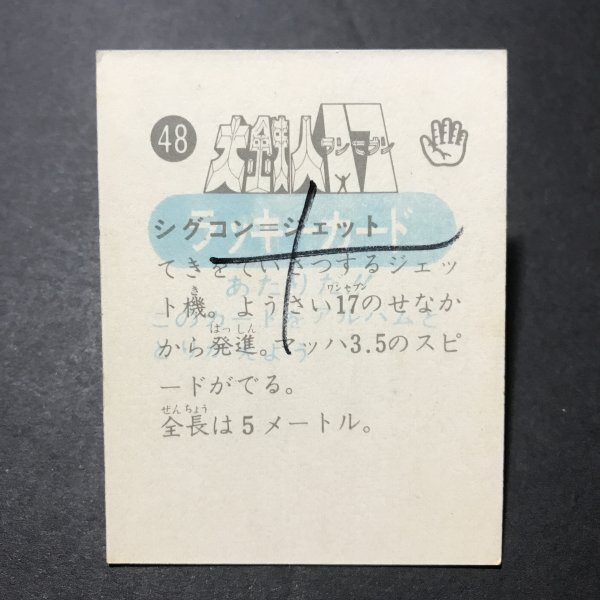 48
大鉄人17
ワンセブン
ラッキーカード
シグコン=ジェット
あたりだよ
てきをていさつするジェッ
ト機。ようさい17のせなか
き
ワンセブン
このカードをアルバムと
から発進。マッハ3.5のスピ
はっしん
とりかえよう
ードがでる。
全長は5メートル。
ぜんちょう